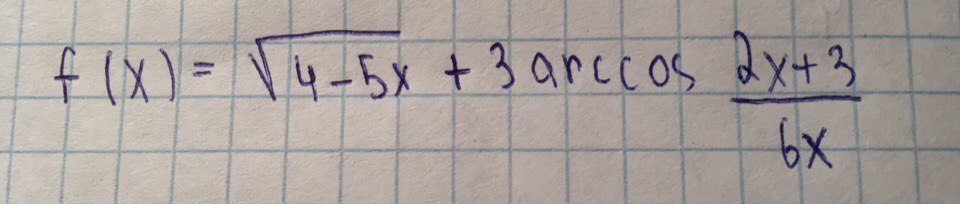 f(x) = √(4-5x) + 3 arccos (2x+3)/(6x)